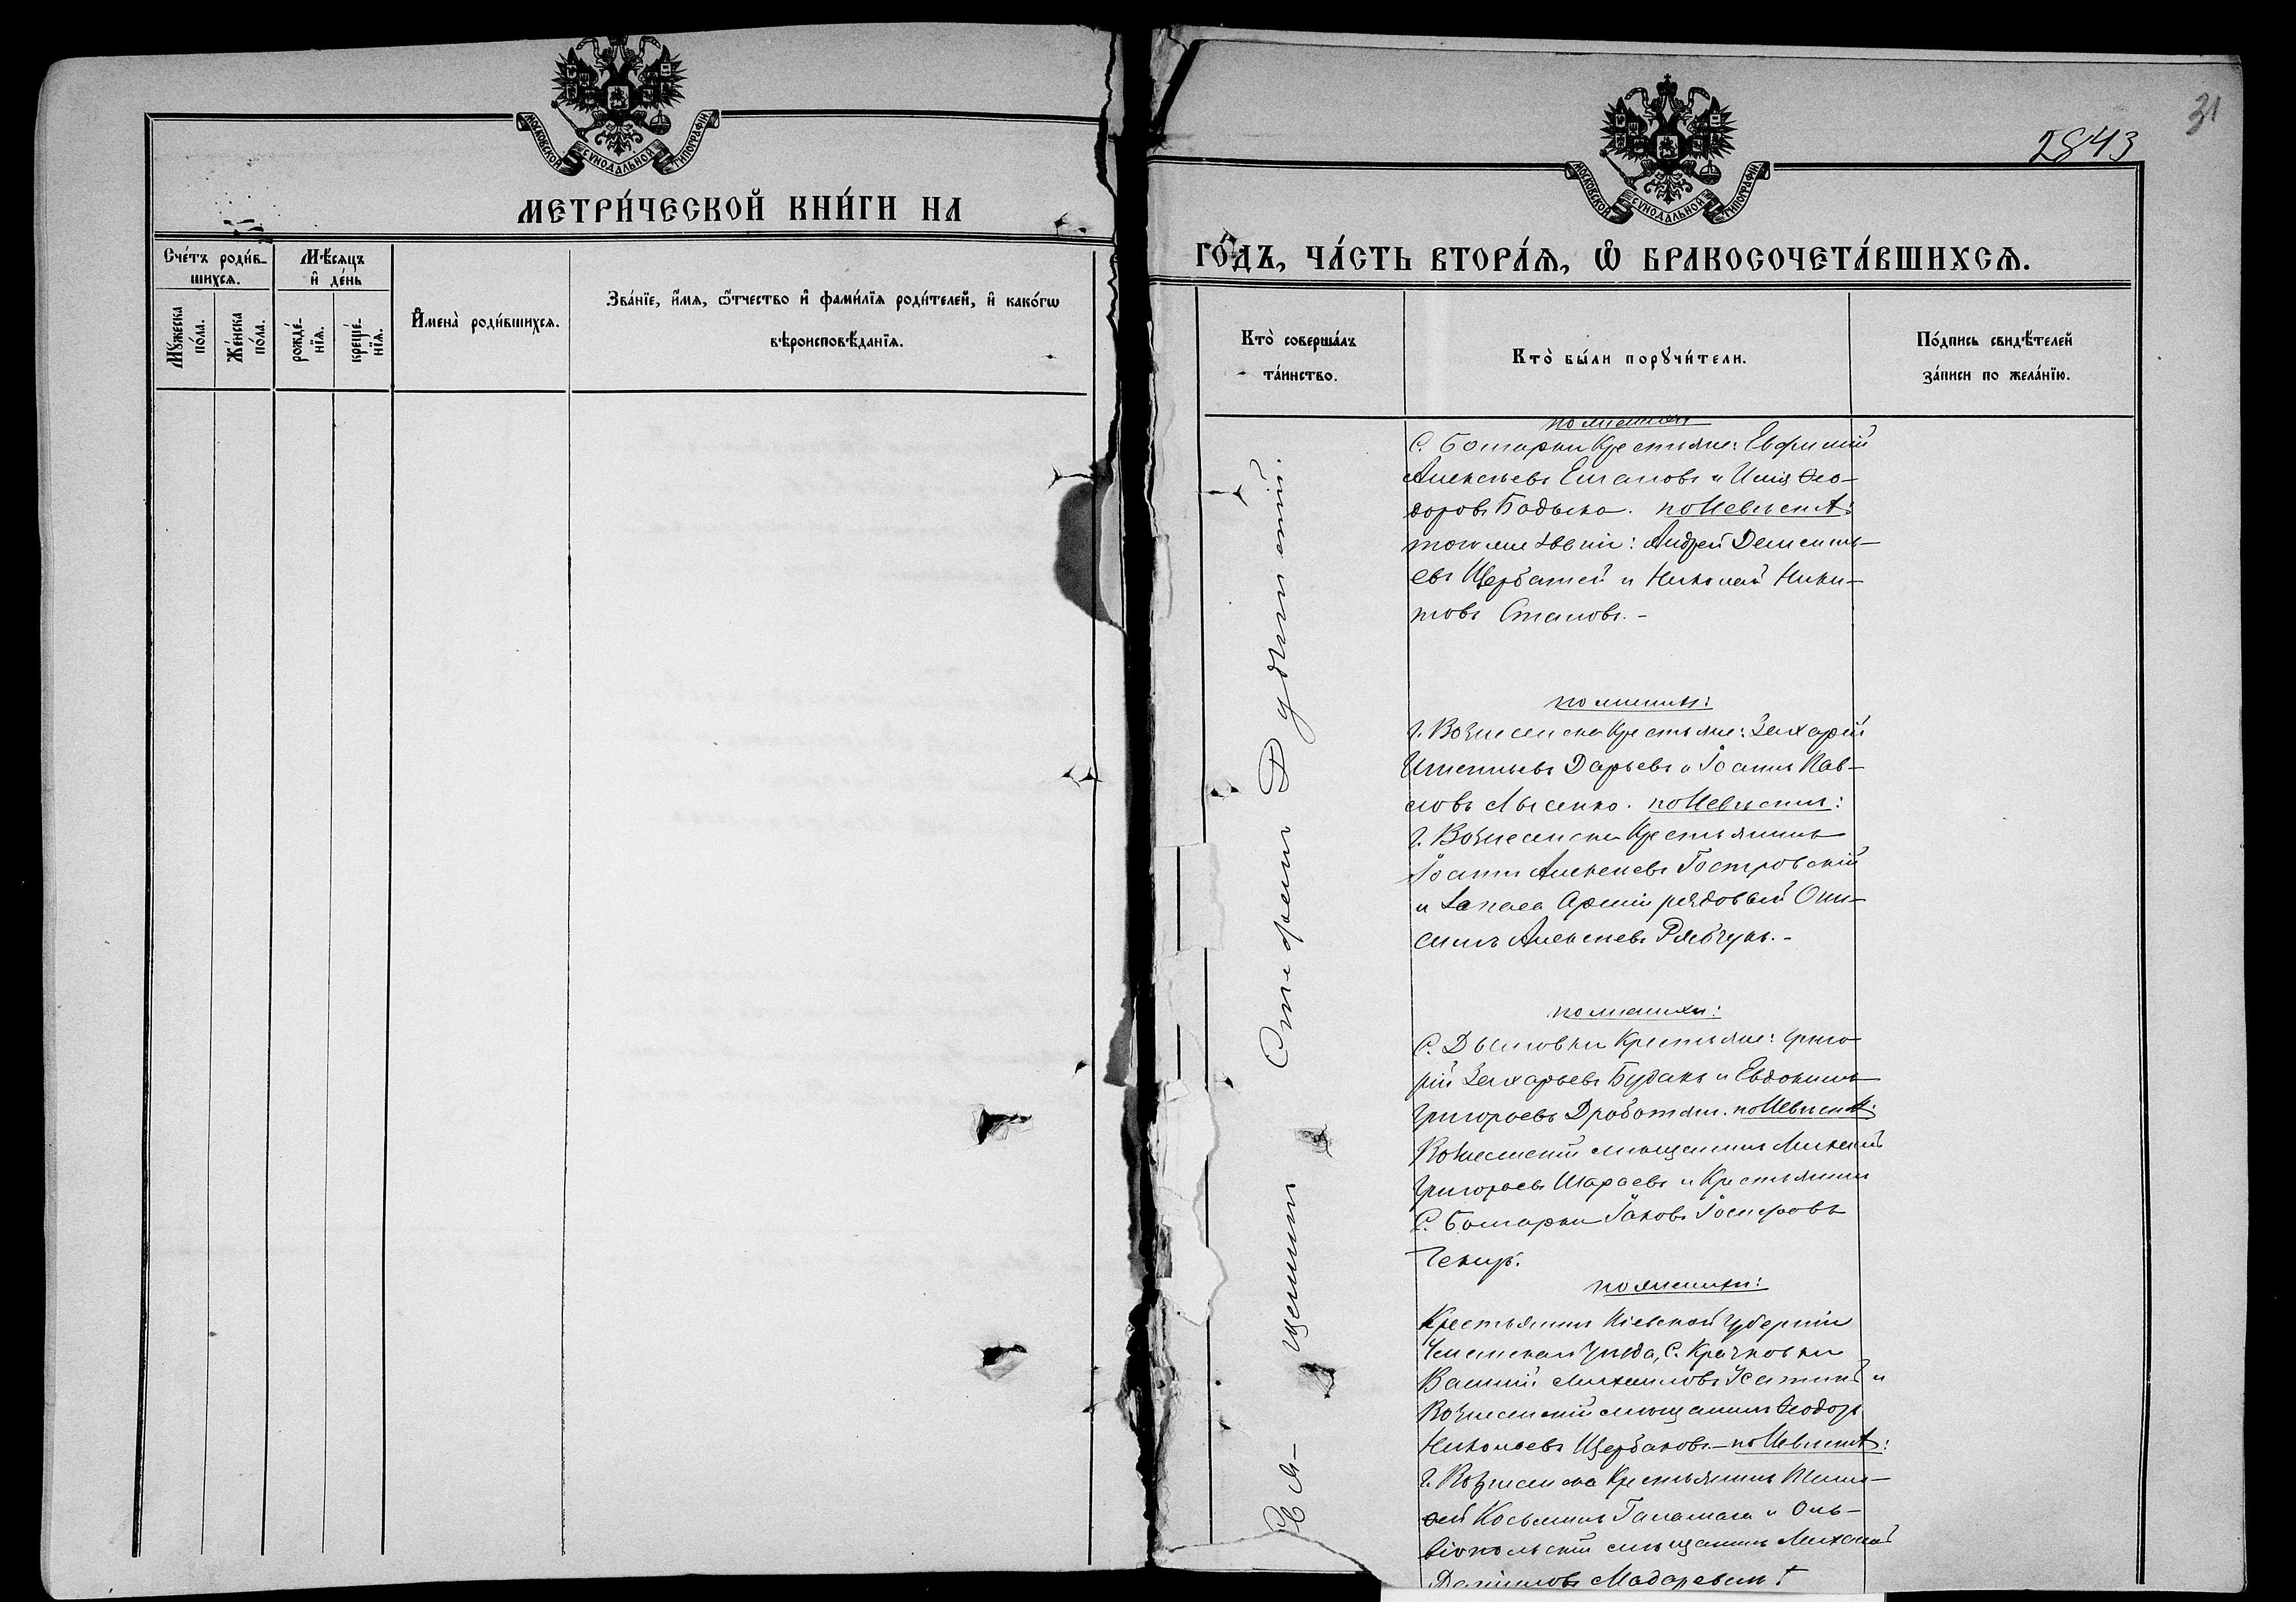 МОСКОВСКОЙ СѴНОДАЛЬНОЙ ТИПОГРАФІИ
МЕТРИ́ЧЕСКОЙ КНИ́ГИ НА
Сче́тъ роди́в-
шихсѧ.
Мѣ́сѧцъ
и҆ де́нь
Мꙋ́жеска
по́ла.
Же́нска
по́ла.
рожде́-
нїѧ.
креще́-
нїѧ.
И҆мена̀ роди́вшихсѧ.
Зва́нїе, и҆́мѧ, ѻ҆́тчество и҆ фами́лїѧ роди́телей, и҆ како́гѡ
вѣроисповѣ́данїѧ.
31
2843
МОСКОВСКОЙ СѴНОДАЛЬНОЙ ТИПОГРАФІИ
ГО́ДЪ, ЧА́СТЬ ВТОРА́Ѧ, Ѡ҆ БРАКОСОЧЕТА́ВШИХСѦ.
Кто̀ соверша́лъ
та́инство.
Кто̀ бы́ли порꙋчи́тели.
По́дпись свидѣ́телей
за́писи по жела́нїю.
Свя-
щенникъ
Стефанъ Дудчинскій.
по женихѣ
С. Болгарки Крестьяне: Евфимій
Алексѣевъ и Ѳео-
доровъ по Невѣстѣ:
того же званія: Андрей Дементь-
евъ Щербатей и Николай Ники-
товъ Стаповъ. -
по женихѣ:
г. Вознесенска Крестьяне: Захарій
Игнатьевъ Дарьевъ и Іоаннъ Пав-
ловъ Лысенко. по Невѣстѣ:
г. Вознесенска Крестьянинъ
Іоаннъ Алексѣевъ Гостровскій
и Запаса Арміи рядовый Они-
симъ Алексѣевъ Рябчукъ. -
по женихѣ:
С. Дымовки Крестьяне: Григо-
рій Захарьевъ Будакъ и Евдокимъ
Григорьевъ по Невѣстѣ:
Вознесенскій мѣщанинъ Михаилъ
Григорьевъ Шараевъ и Крестьянинъ
С. Болгарки Іаковъ Іосифовъ
Чекиръ.
по женихѣ:
Крестьянинъ Кіевской Губерніи
уѣзда, С. Крачковки
Василій Михаиловъ и
Вознесенскій мѣщанинъ Ѳеодоръ
Николаевъ Щербаковъ. - по Невѣстѣ:
г. Вознесенска Крестьянинъ Тимо-
ѳей Косьминъ и Оль-
віопольскій мѣщанинъ Михаилъ
Даніиловъ